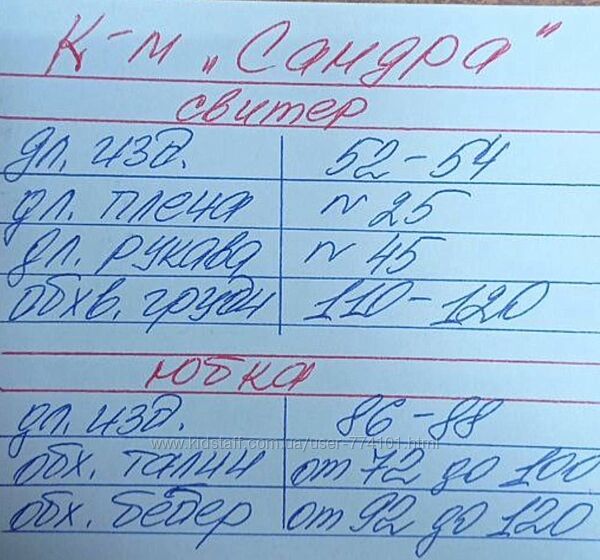 К-м „Сандра"
свитер
дл. изд. 52-54
дл. плеча ~ 25
дл. рукава ~ 45
обхв. груди 110-120
юбка
дл. изд. 86-88
www.kidstaff.com.ua/user-774101.html
обх. талии от 72 до 100
обх. бедер от 92 до 120